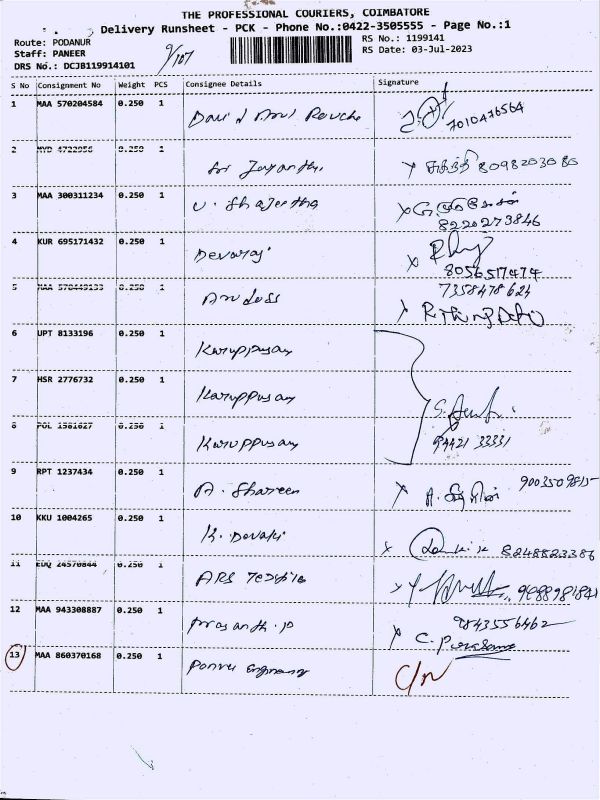 THE PROFESSIONAL COURIERS, COIMBATORE
Delivery Runsheet - PCK - Phone No.:0422-3505555 - Page No.:1
Route: PODANUR
RS No.: 1199141
Staff: PANEER
RS Date: 03-Jul-2023
DRS No.: DCJB119914101
9/107
S No Consignment No Weight PCS Consignee Details Signature
1 MAA 570204584 0.250 1
7010476564
2 0.250 1 Sri Jayanthi
8098203080
3 MAA 300311234 0.250 1 U. Shajeetha
8220273846
4 KUR 695171432 0.250 1 Devaraj
8056517474
5 MAA 570449133 0.250 1 Arul doss
7358478624
6 UPT 8133196 0.250 1 Karuppusamy
7 HSR 2776732 0.250 1 Karuppusamy
8 POL 1581627 0.250 1 Karuppusamy
94421 33331
9 RPT 1237434 0.250 1 A. Shareen
9003509815
10 KKU 1004265 0.250 1 K. Devaki
8248823386
11 EDQ 24570844 0.250 1 ARS Textile
12 MAA 943308887 0.250 1 Prasanth.P
9843556462
13 MAA 860370168 0.250 1 Engineering
C/N